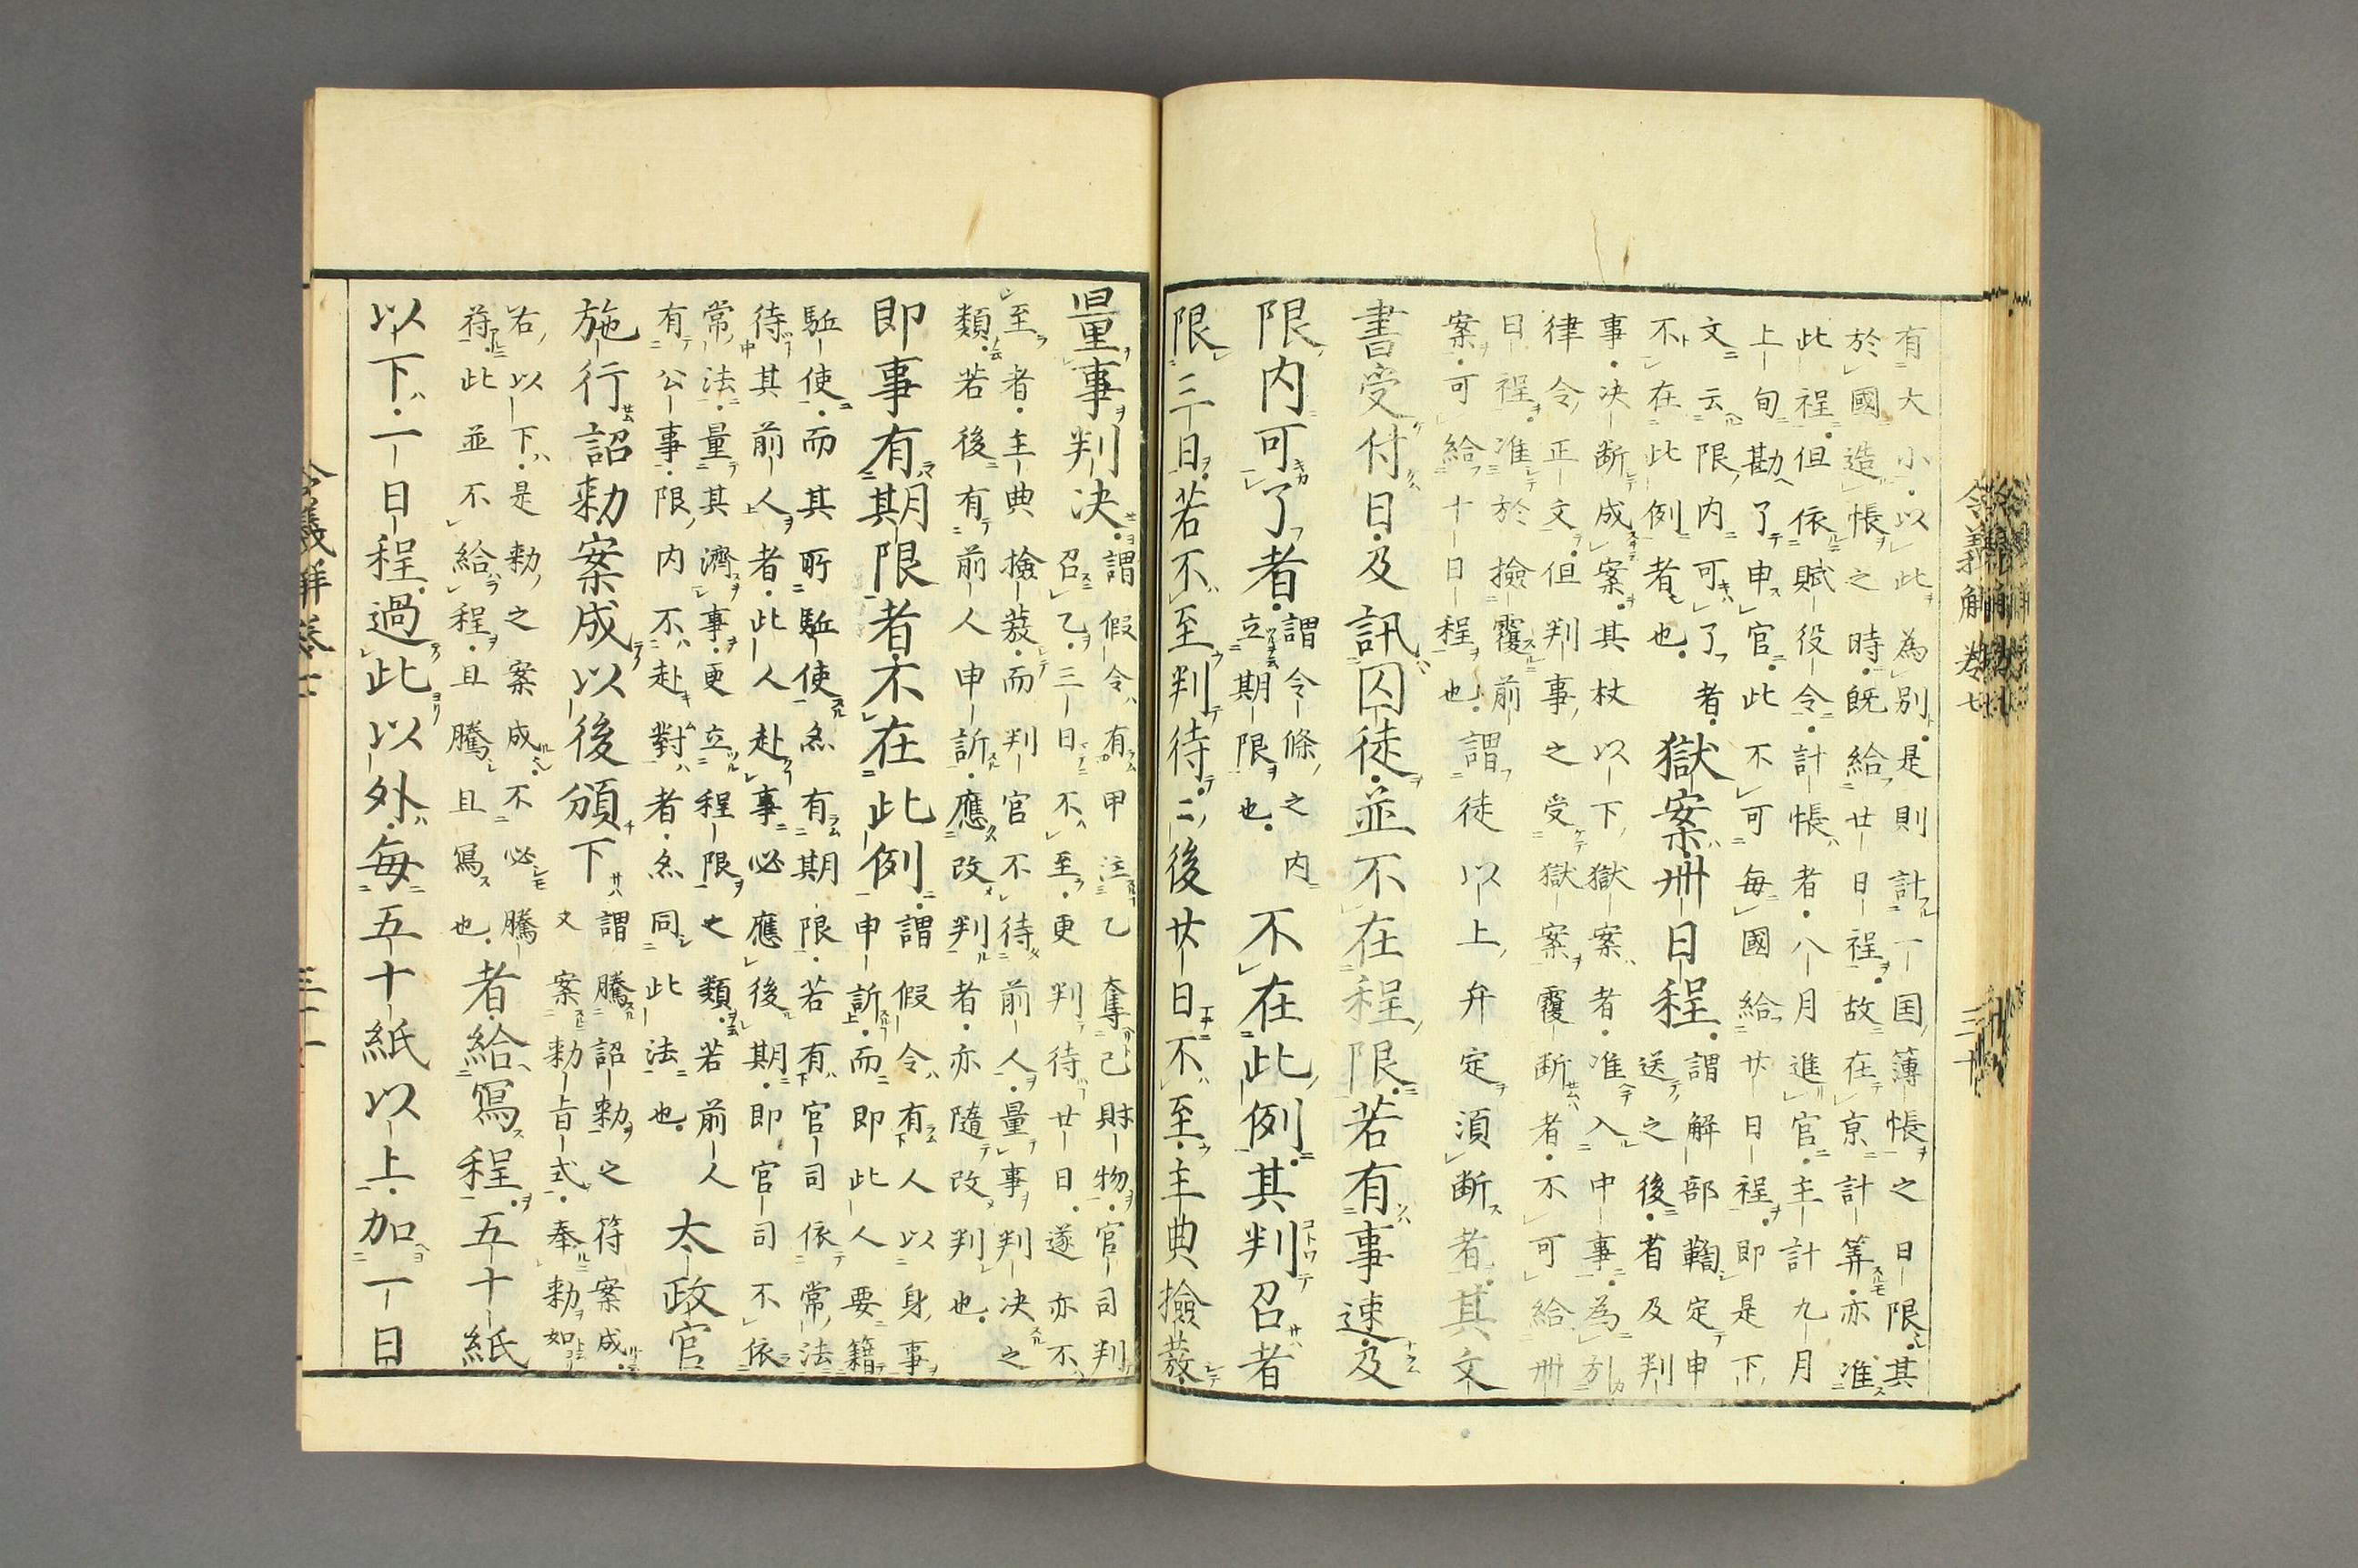 有大小以此為別是則計一国簿帳之日限其
於國造帳之時既給廿日程故在京計筭亦准
此程但依賦役令計帳者八月進官主計九月
上旬勘了申官此不可毎國給廿日程即是下
文云限内可了者
不在此例者也
獄案卌日程
謂解部鞫定申
送之後者及判
事決断成案其杖以下獄案者准入中事為例
律令正文但判事之受獄案覆断者不可給卌
日程准於撿覆前
案可給十日程也
謂徒以上弁定須断者其文
書受付日及訊囚徒並不在程限若有事速及
限内可了者
謂令條之内
立期限也
不在此例其判召者
限三日若不至判待二後廿日不至主典撿蕟
量事判決
謂假令有甲注乙奪己財物官司判
召乙三日不至更判待廿日遂亦不
至者主典撿蕟而判官不待前人量事判決之
類若後有前人申訴應改判者亦隨改判也
即事有期限者不在此例
謂假令有人以身事
申訴而即此人要籍
駈使而其所駈使亦有期限若有官司依常法
待其前人者此人赴事必應後期即官司不依
常法量其濟事更立程限之類若前人
有公事限内不赴對者亦同此法也
太政官
施行詔勅案成以後頒下
謂騰詔勅之符案成
文案勅旨式奉勅如
右以下是勅之案成不必騰
符此並不給程且騰且寫也
者給寫程五十紙
以下一日程過此以外毎五十紙以上加一日
令義解卷七
三十